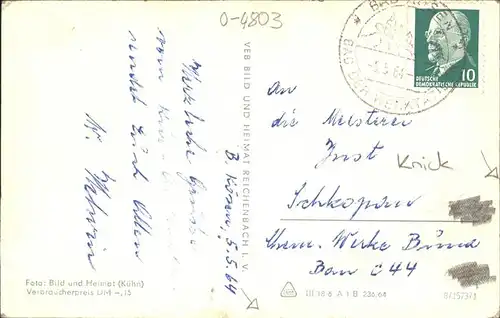 0-4803
BAD KÖSEN
5.5.64
BAD DER WERKTÄTIGEN
10
DEUTSCHE
DEMOKRATISCHE REPUBLIK
B. Kösen, 5.5.64
Herzliche Grüße
vom
sendet Euch Allen
VEB BILD UND HEIMAT REICHENBACH I. V.
An
die Meisterei
Just
Krick
Schkopau
Chem. Werke Buna
Bau C 44
Foto: Bild und Heimat (Kühn)
Verbraucherpreis DM -,15
III 18 6 A 1 B 236.64